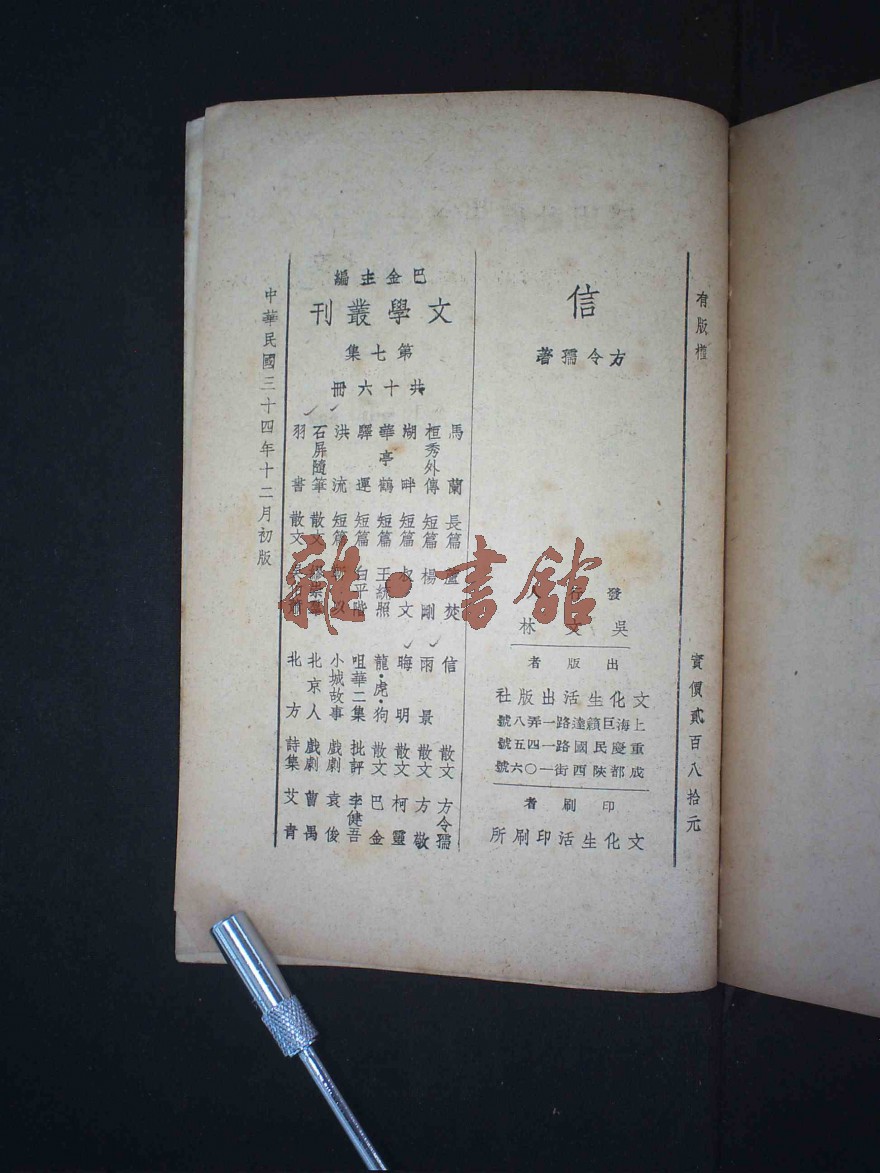 有版權
實價貳百八拾元
信
方令孺著
發行人
吳文林
出版者
文化生活出版社
上海巨籟達路一弄八號
重慶民國路一四五號
成都陝西街一〇六號
印刷者
文化生活印刷所
巴金主編
文學叢刊
第七集
共十六冊
馬蘭 長篇 蘆焚
桓秀外傳 短篇 楊剛
湖畔 短篇 叔文
華亭鶴 短篇 王統照
驛運 短篇 白平階
洪流 短篇
石屏隨筆 散文 繆崇羣
羽書 散文
信 散文 方令孺
雨景 散文 方敬
晦明 散文 柯靈
龍·虎·狗 散文 巴金
咀華二集 批評 李健吾
小城故事 戲劇 袁俊
北京人 戲劇 曹禺
北方 詩集 艾青
中華民國三十四年十二月初版
雜·書館